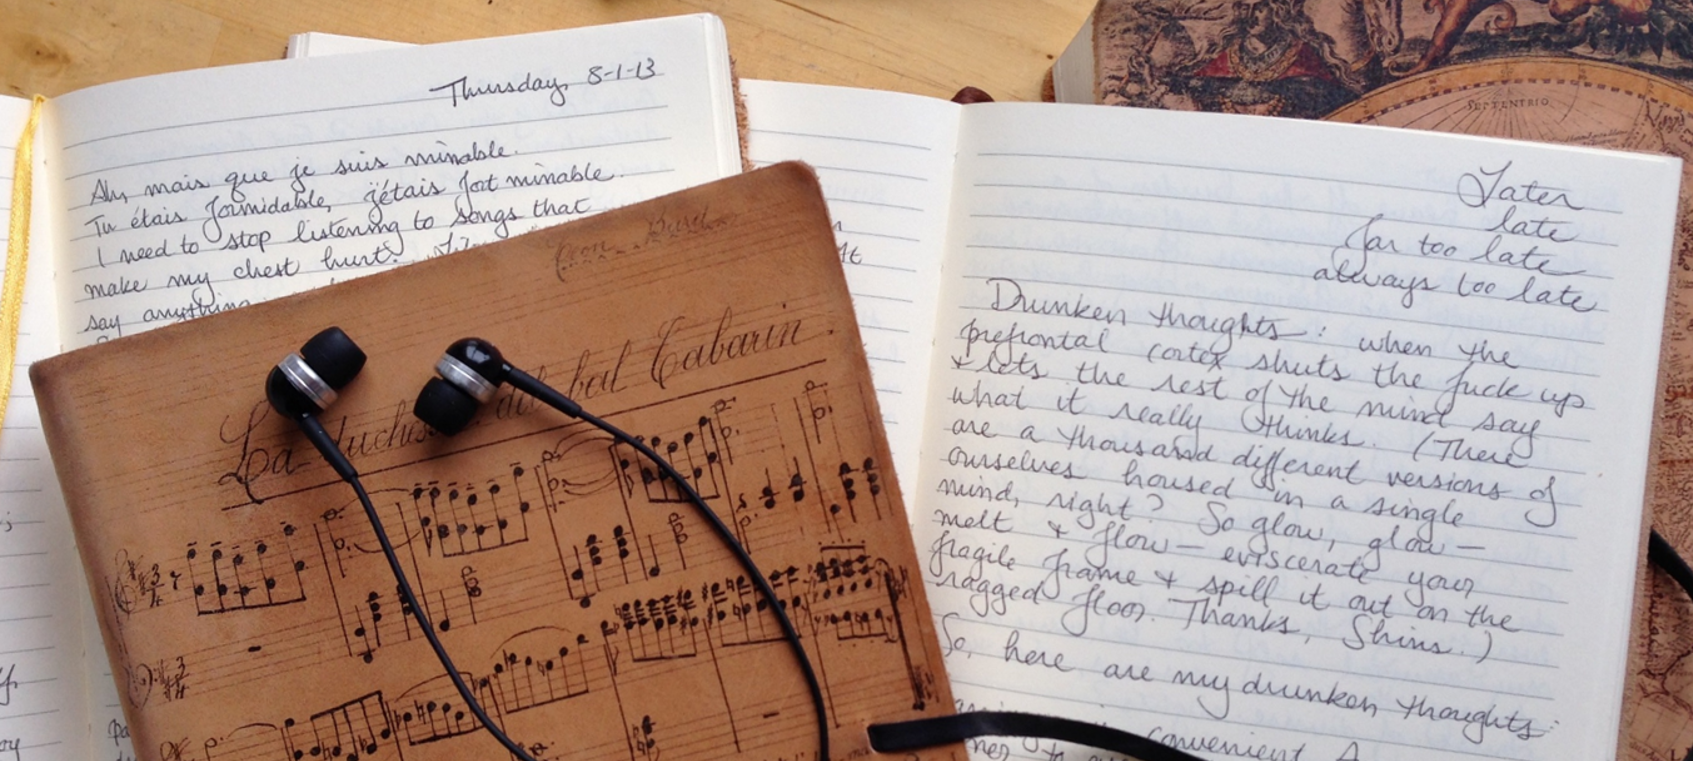 Thursday, 8-1-13
Ah, mais que je suis minable.
Tu étais formidable, j'étais fort minable.
I need to stop listening to songs that
make my chest hurt.
say anything
La duchesse du bal Tabarin
SEPTENTRIO
Later
late
far too late
always too late
Drunken thoughts: when the
prefrontal cortex shuts the fuck up
& lets the rest of the mind say
what it really thinks. (There
are a thousand different versions of
ourselves housed in a single
mind, right? So glow, glow—
melt & flow — eviscerate your
fragile frame & spill it out on the
ragged floor. Thanks, Shins.)
So, here are my drunken thoughts:
convenient A